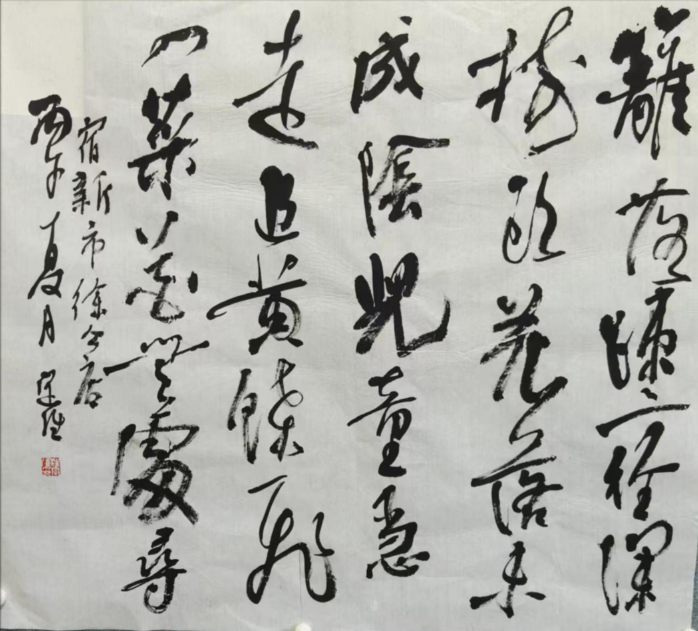 籬落疎々一徑深
樹頭花落未
成陰兒童急
走追黄蝶飛
入菜花無處尋
宿新市徐公店
丙午夏月